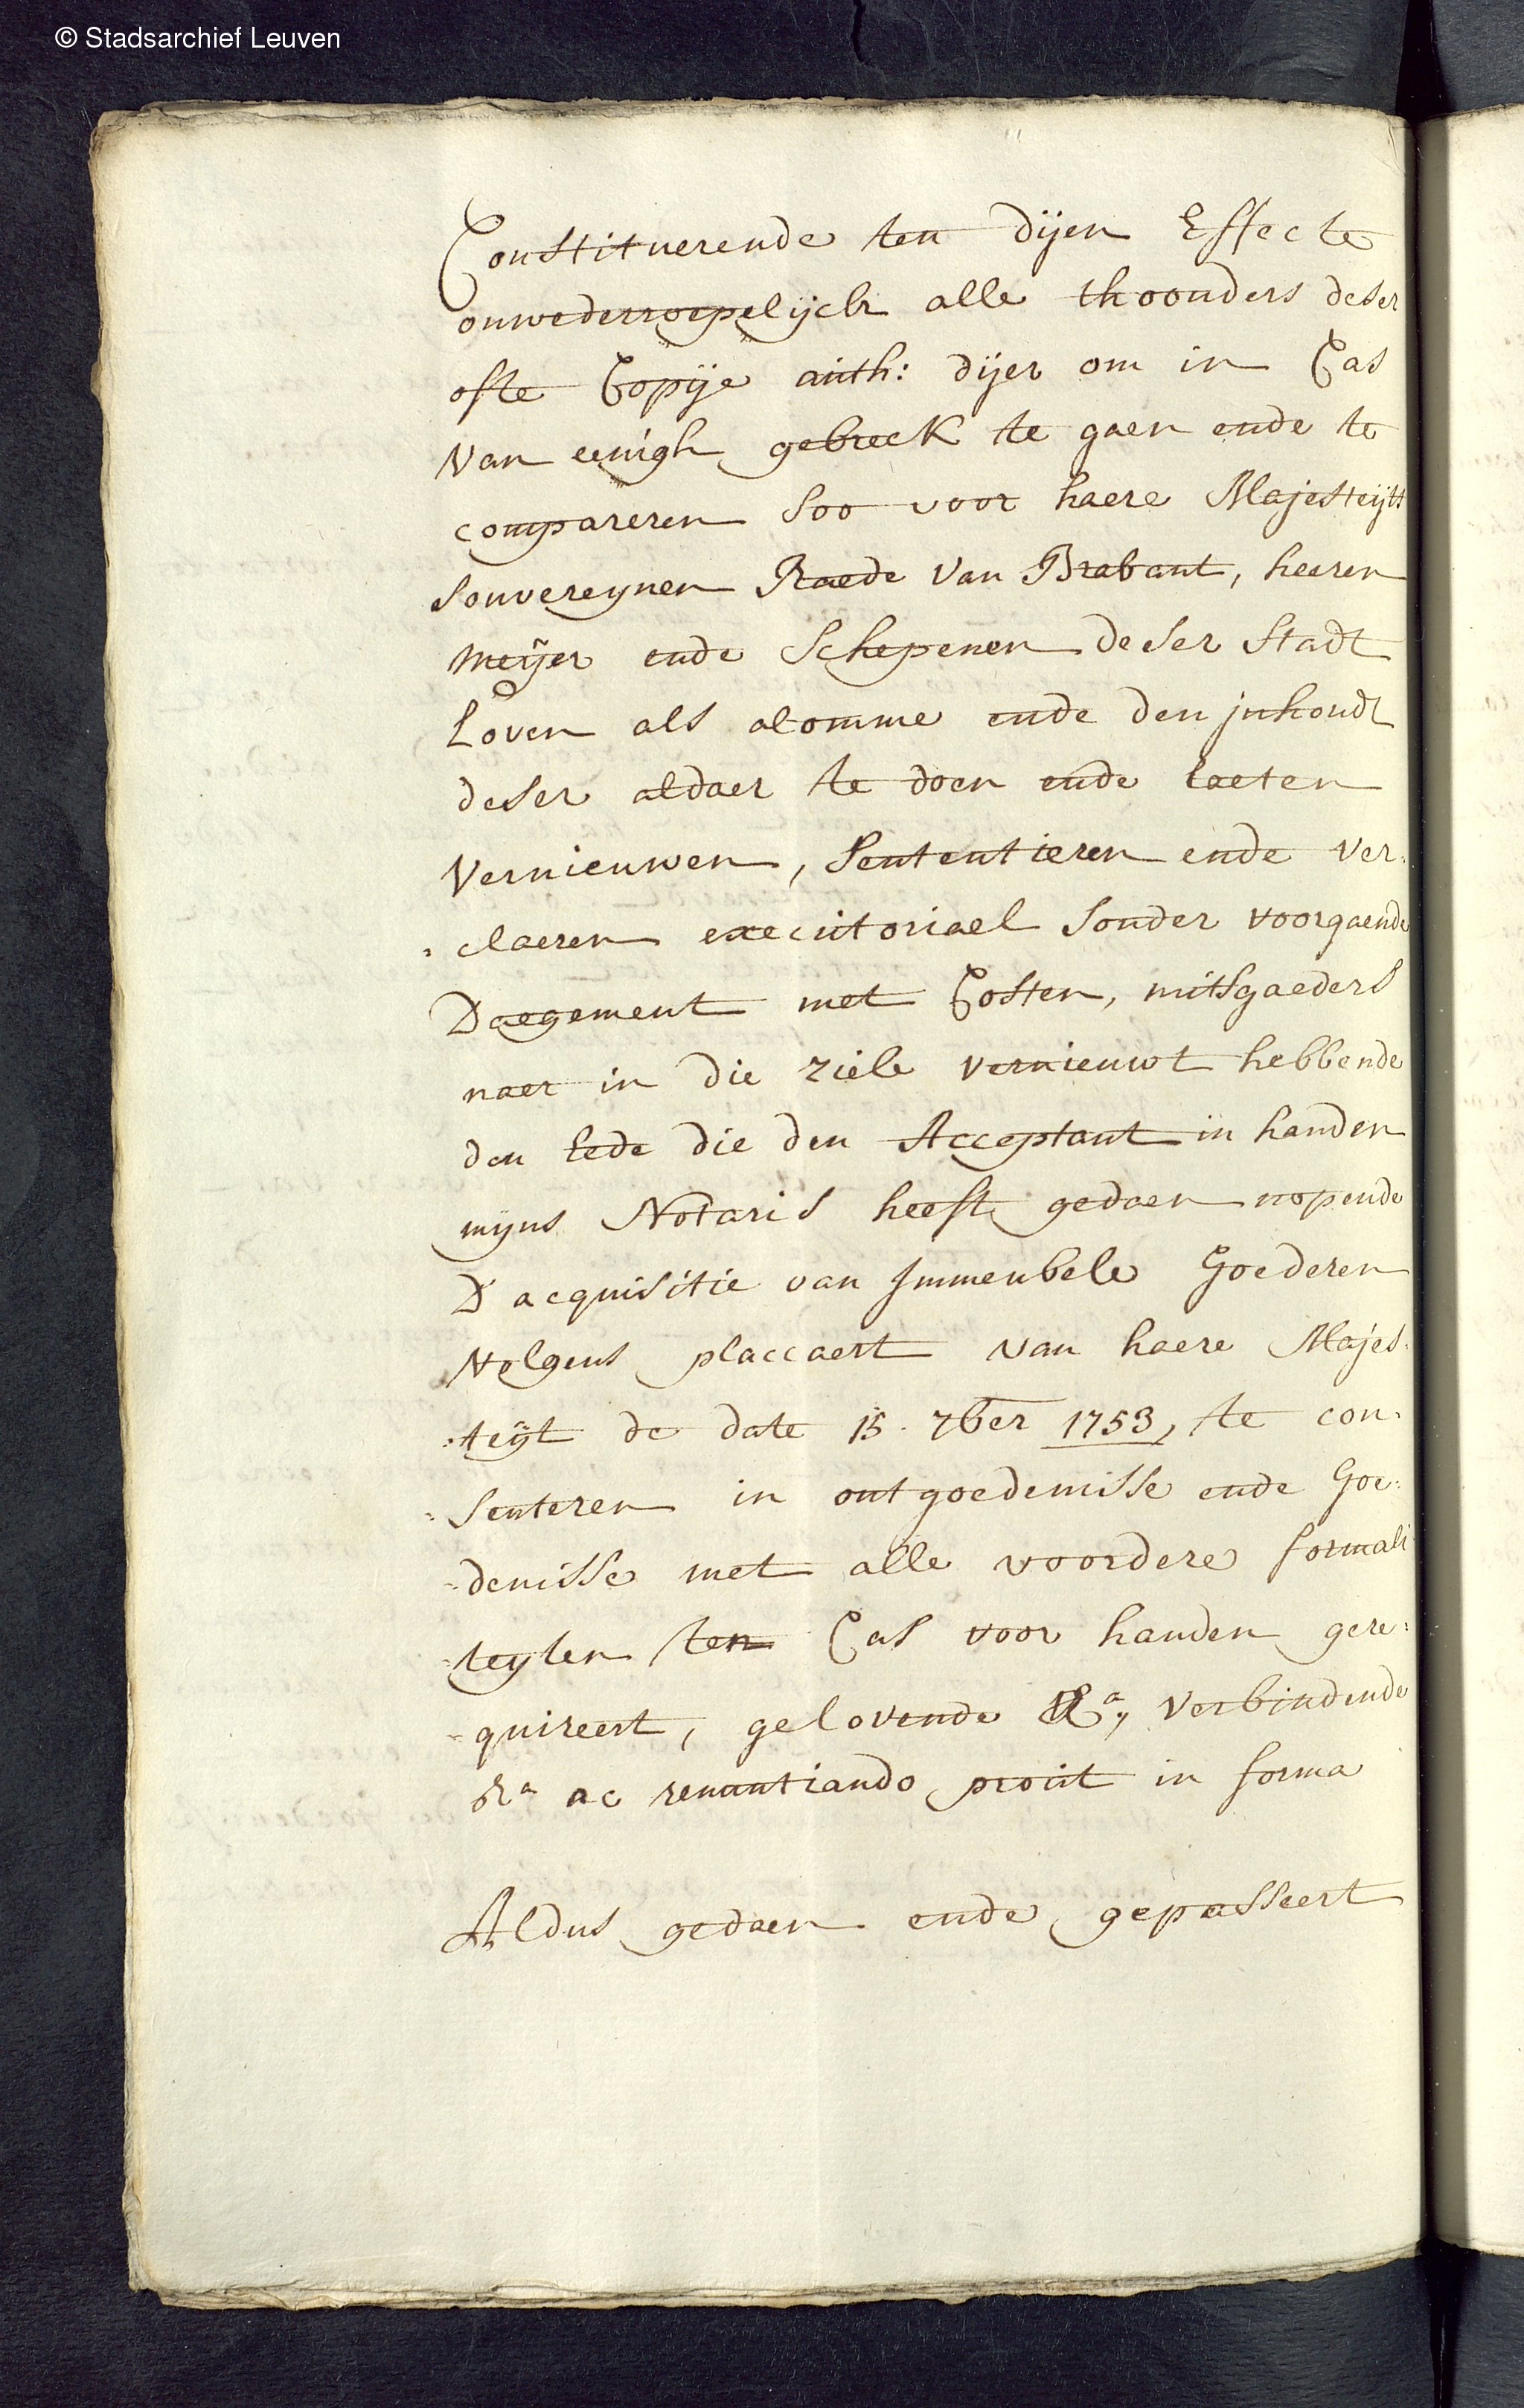 © Stadsarchief Leuven
Constituerende ten dijen Effecte
onwederroepelijck alle thoonders deser
ofte Copije auth: dijer om in Cas
van eenigh gebreck te gaen ende te
compareren soo voor haere Majesteijts
souvereynen Raede van Brabant, heeren
meijer ende schepenen deser stadt
Loven als alomme ende den jnhoudt
deser aldaer te doen ende laeten
vernieuwen, sententieren ende ver:
:claeren executoriael sonder voorgaende
Daegement met Costen, mitsgaeders
naer in die ziele vernieuwt hebbende
den Eede die den Acceptant in handen
mijns Notaris heeft gedaen nopende
D'acquisitie van Immeubele Goederen
volgens placcaert van haere Majes:
:teijt de date 15. 7ber 1753, te con:
:senteren in ontgoedenisse ende Goe:
:denisse met alle voordere formali
:teyten ten Cas voor handen gere:
:quireert, gelovende &a, verbindende
&a ac renuntiando prout in forma
Aldus gedaen ende gepasseert